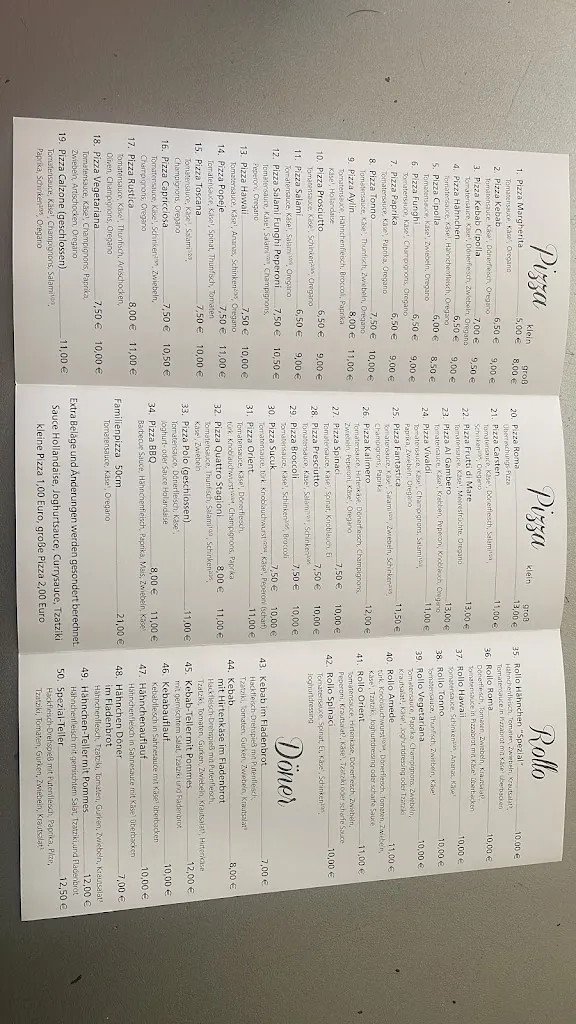 Pizza
klein groß
1. Pizza Margherita 5,00 € 8,00 €
Tomatensauce, Käse¹, Oregano
2. Pizza Kebab 6,50 € 9,00 €
Tomatensauce, Käse¹, Dönerfleisch, Oregano
3. Pizza Kebab Cipolla 7,00 € 9,50 €
Tomatensauce, Käse¹, Dönerfleisch, Zwiebeln, Oregano
4. Pizza Hähnchen 6,50 € 9,00 €
Tomatensauce, Käse¹, Hähnchenfleisch, Oregano
5. Pizza Cipolla 6,00 € 8,50 €
Tomatensauce, Käse¹, Zwiebeln, Oregano
6. Pizza Funghi 6,50 € 9,00 €
Tomatensauce, Käse¹, Champignons, Oregano
7. Pizza Paprika 6,50 € 9,00 €
Tomatensauce, Käse¹, Paprika, Oregano
8. Pizza Tonno 7,50 € 10,00 €
Tomatensauce, Käse¹, Thunfisch, Zwiebeln, Oregano
9. Pizza Aylin 8,00 € 11,00 €
Tomatensauce, Hähnchenfleisch, Broccoli, Paprika
Käse¹, Hollandaise
10. Pizza Prosciutto 6,50 € 9,00 €
Tomatensauce, Käse¹, Schinken, Oregano
11. Pizza Salami 6,50 € 9,00 €
Tomatensauce, Käse¹, Salami, Oregano
12. Pizza Salami Funghi Peperoni 7,50 € 10,50 €
Tomatensauce, Käse¹, Salami, Champignons,
Peperoni, Oregano
13. Pizza Hawaii 7,50 € 10,00 €
Tomatensauce, Käse¹, Ananas, Schinken, Oregano
14. Pizza Popeje 7,50 € 11,00 €
Tomatensauce, Käse¹, Spinat, Thunfisch, Tomaten
15. Pizza Toscana 7,50 € 10,00 €
Tomatensauce, Käse¹, Salami,
Champignons, Oregano
16. Pizza Capricciosa 7,50 € 10,50 €
Tomatensauce, Käse¹, Schinken, Zwiebeln,
Champignons, Oregano
17. Pizza Rustica 8,00 € 11,00 €
Tomatensauce, Käse¹, Thunfisch, Artischocken,
Oliven, Champignons, Oregano
18. Pizza Vegetariana 7,50 € 10,00 €
Tomatensauce, Käse¹, Champignons, Paprika,
Zwiebeln, Artischocken, Oregano
19. Pizza Calzone (geschlossen) 11,00 €
Tomatensauce, Käse¹, Champignons, Salami,
Paprika, Schinken, Oregano
Pizza
klein groß
20. Pizza Roma 13,00 €
21. Pizza Carsten 11,00 €
Tomatensauce, Käse¹, Dönerfleisch, Salami,
Schinken, Oregano
22. Pizza Frutti di Mare 13,00 €
Tomatensauce, Käse¹, Meeresfrüchte, Oregano
23. Pizza Al Gambero 13,00 €
Tomatensauce, Käse¹, Krabben, Peperoni, Knoblauch, Oregano
24. Pizza Vivaldi 11,00 €
Tomatensauce, Käse¹, Champignons, Salami,
Paprika, Zwiebeln, Oregano
25. Pizza Fantastica 11,50 €
Tomatensauce, Käse¹, Salami, Zwiebeln, Schinken,
Champignons, Paprika
26. Pizza Kalimero 12,00 €
Tomatensauce, Hirtenkäse, Dönerfleisch, Champignons,
Zwiebeln, Peperoni, Käse¹, Oregano
27. Pizza Spinaci 7,50 € 10,00 €
Tomatensauce, Käse¹, Spinat, Knoblauch, Ei
28. Pizza Presciutto 7,50 € 10,00 €
Tomatensauce, Käse¹, Salami, Schinken
29. Pizza Broccoli 7,50 € 10,00 €
Tomatensauce, Käse¹, Schinken, Broccoli
30. Pizza Sucuk 7,50 € 10,00 €
Tomatensauce, türk. Knoblauchwurst, Käse¹, Peperoni (scharf)
31. Pizza Orient 11,00 €
Tomatensauce, Käse¹, Dönerfleisch,
türk. Knoblauchwurst, Champignons, Paprika
32. Pizza Quattro Stagioni 8,00 € 11,00 €
Tomatensauce, Thunfisch, Salami, Schinken,
Käse¹, Zwiebeln
33. Pizza Polo (geschlossen) 11,00 €
Tomatensauce, Dönerfleisch, Käse¹,
Joghurt- oder Sauce Hollandaise
34. Pizza BBQ 8,00 € 11,00 €
Barbecue Sauce, Hähnchenfleisch, Paprika, Mais, Zwiebeln, Käse¹
Familienpizza 50cm 21,00 €
Tomatensauce, Käse¹, Oregano
Extra Beläge und Änderungen werden gesondert berechnet
Sauce Hollandaise, Joghurtsauce, Currysauce, Tzatziki
kleine Pizza 1,00 Euro, große Pizza 2,00 Euro
Rollo
35. Rollo Hähnchen "Spezial" 10,00 €
Hähnchenfleisch, Tomaten, Zwiebeln, Krautsalat,
Tomatensauce in Pizzabrot mit Käse¹ überbacken
36. Rollo Roma 10,00 €
Dönerfleisch, Tomaten, Zwiebeln, Krautsalat,
Tomatensauce in Pizzabrot mit Käse¹ überbacken
37. Rollo Hawaii 10,00 €
Tomatensauce, Schinken, Ananas, Käse¹
38. Rollo Tonno 10,00 €
Tomatensauce, Thunfisch, Zwiebeln, Käse¹
39. Rollo Vegetariana 10,00 €
Tomatensauce, Paprika, Champignons, Zwiebeln,
Krautsalat, Käse¹, Joghurtdressing oder Tzatziki
40. Rollo Amede 11,00 €
türk. Knoblauchwurst, Dönerfleisch, Tomaten, Zwiebeln,
Käse¹, Tzatziki, Joghurtdressing oder scharfe Sauce
41. Rollo Orient 11,00 €
Tomatensauce, Hirtenkäse, Dönerfleisch, Zwiebeln,
Peperoni, Krautsalat, Käse¹, Tzatziki oder scharfe Sauce
42. Rollo Spinaci 10,00 €
Tomatensauce, Spinat, Ei, Käse¹, Schinken,
Joghurtdressing
Döner
43. Kebab im Fladenbrot 7,00 €
Hackfleisch-Drehspieß mit Putenfleisch,
Tzatziki, Tomaten, Gurken, Zwiebeln, Krautsalat
44. Kebab
mit Hirtenkäse im Fladenbrot 8,00 €
Hackfleisch-Drehspieß mit Putenfleisch,
Tzatziki, Tomaten, Gurken, Zwiebeln, Krautsalat, Hirtenkäse
45. Kebab-Teller mit Pommes 12,00 €
mit gemischtem Salat, Tzatziki und Fladenbrot
46. Kebabauflauf 10,00 €
Kebabfleisch in Sahnesauce mit Käse¹ überbacken
47. Hähnchenauflauf 10,00 €
Hähnchenfleisch in Sahnesauce mit Käse¹ überbacken
48. Hähnchen Döner
im Fladenbrot 7,00 €
Hähnchenfleisch, Tzatziki, Tomaten, Gurken, Zwiebeln, Krautsalat
49. Hähnchen-Teller mit Pommes 12,00 €
Hähnchenfleisch mit gemischtem Salat, Tzatziki und Fladenbrot
50. Spezial-Teller 12,50 €
Hackfleisch-Drehspieß mit Putenfleisch, Paprika, Pilze,
Tzatziki, Tomaten, Gurken, Zwiebeln, Krautsalat